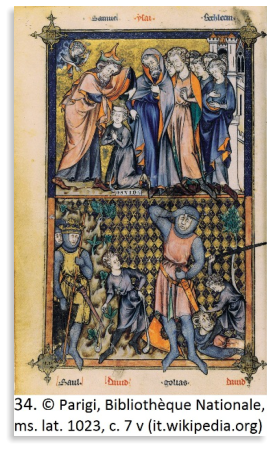 Samuel ysai Bethleem
DAVID
Saul David golias David
34. © Parigi, Bibliothèque Nationale,
ms. lat. 1023, c. 7 v (it.wikipedia.org)